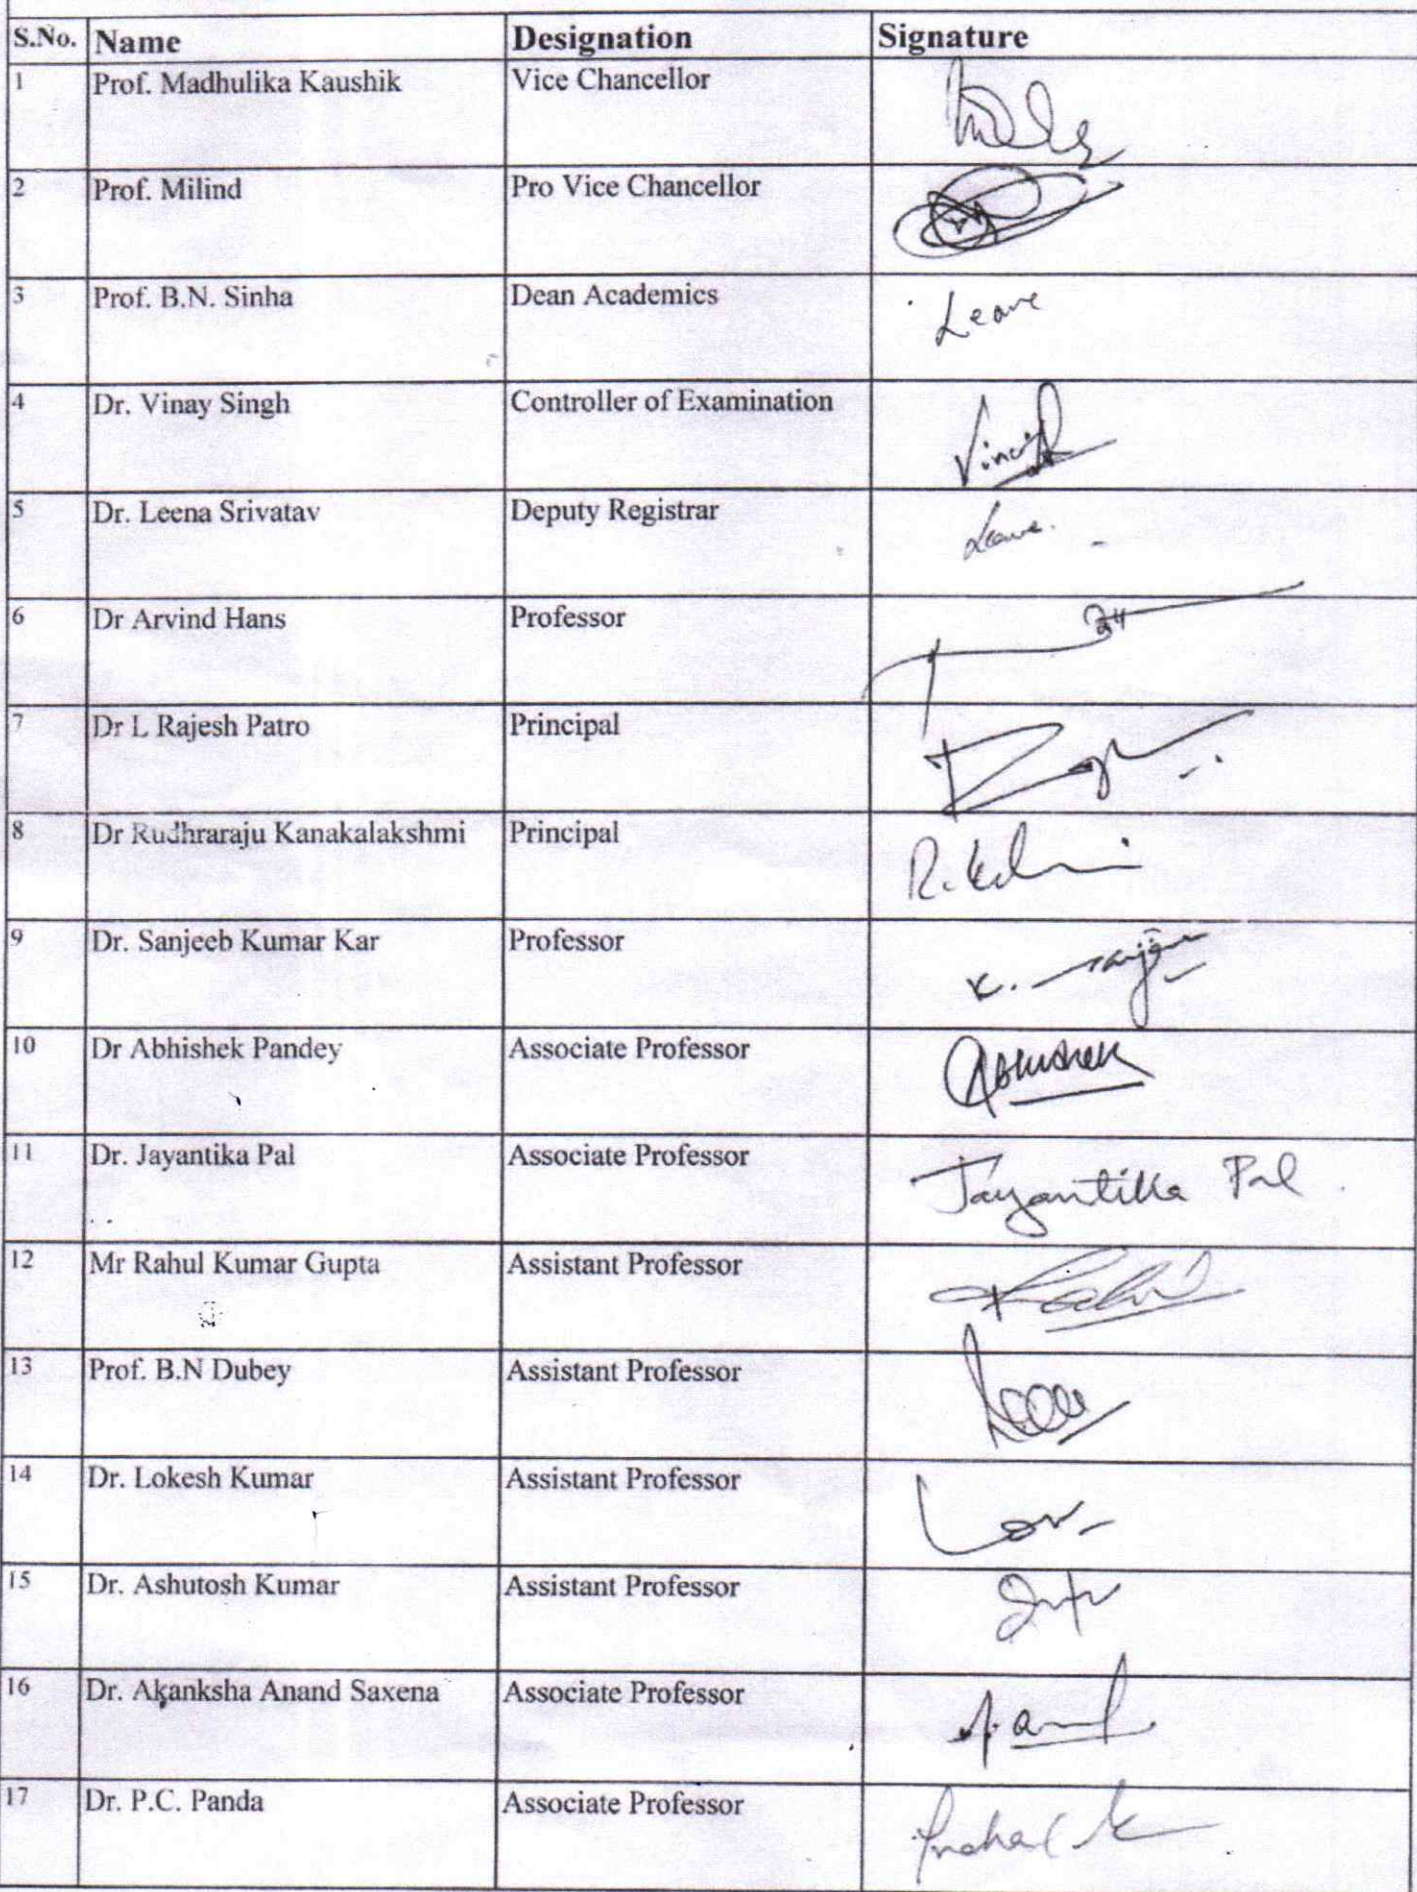 S.No. Name Designation Signature
1 Prof. Madhulika Kaushik Vice Chancellor
2 Prof. Milind Pro Vice Chancellor
3 Prof. B.N. Sinha Dean Academics Leave
4 Dr. Vinay Singh Controller of Examination
5 Dr. Leena Srivatav Deputy Registrar Leave.
6 Dr Arvind Hans Professor
7 Dr L Rajesh Patro Principal
8 Dr Rudhraraju Kanakalakshmi Principal
9 Dr. Sanjeeb Kumar Kar Professor
10 Dr Abhishek Pandey Associate Professor Abhishek
11 Dr. Jayantika Pal Associate Professor Jayantika Pal
12 Mr Rahul Kumar Gupta Assistant Professor
13 Prof. B.N Dubey Assistant Professor
14 Dr. Lokesh Kumar Assistant Professor
15 Dr. Ashutosh Kumar Assistant Professor
16 Dr. Akanksha Anand Saxena Associate Professor
17 Dr. P.C. Panda Associate Professor